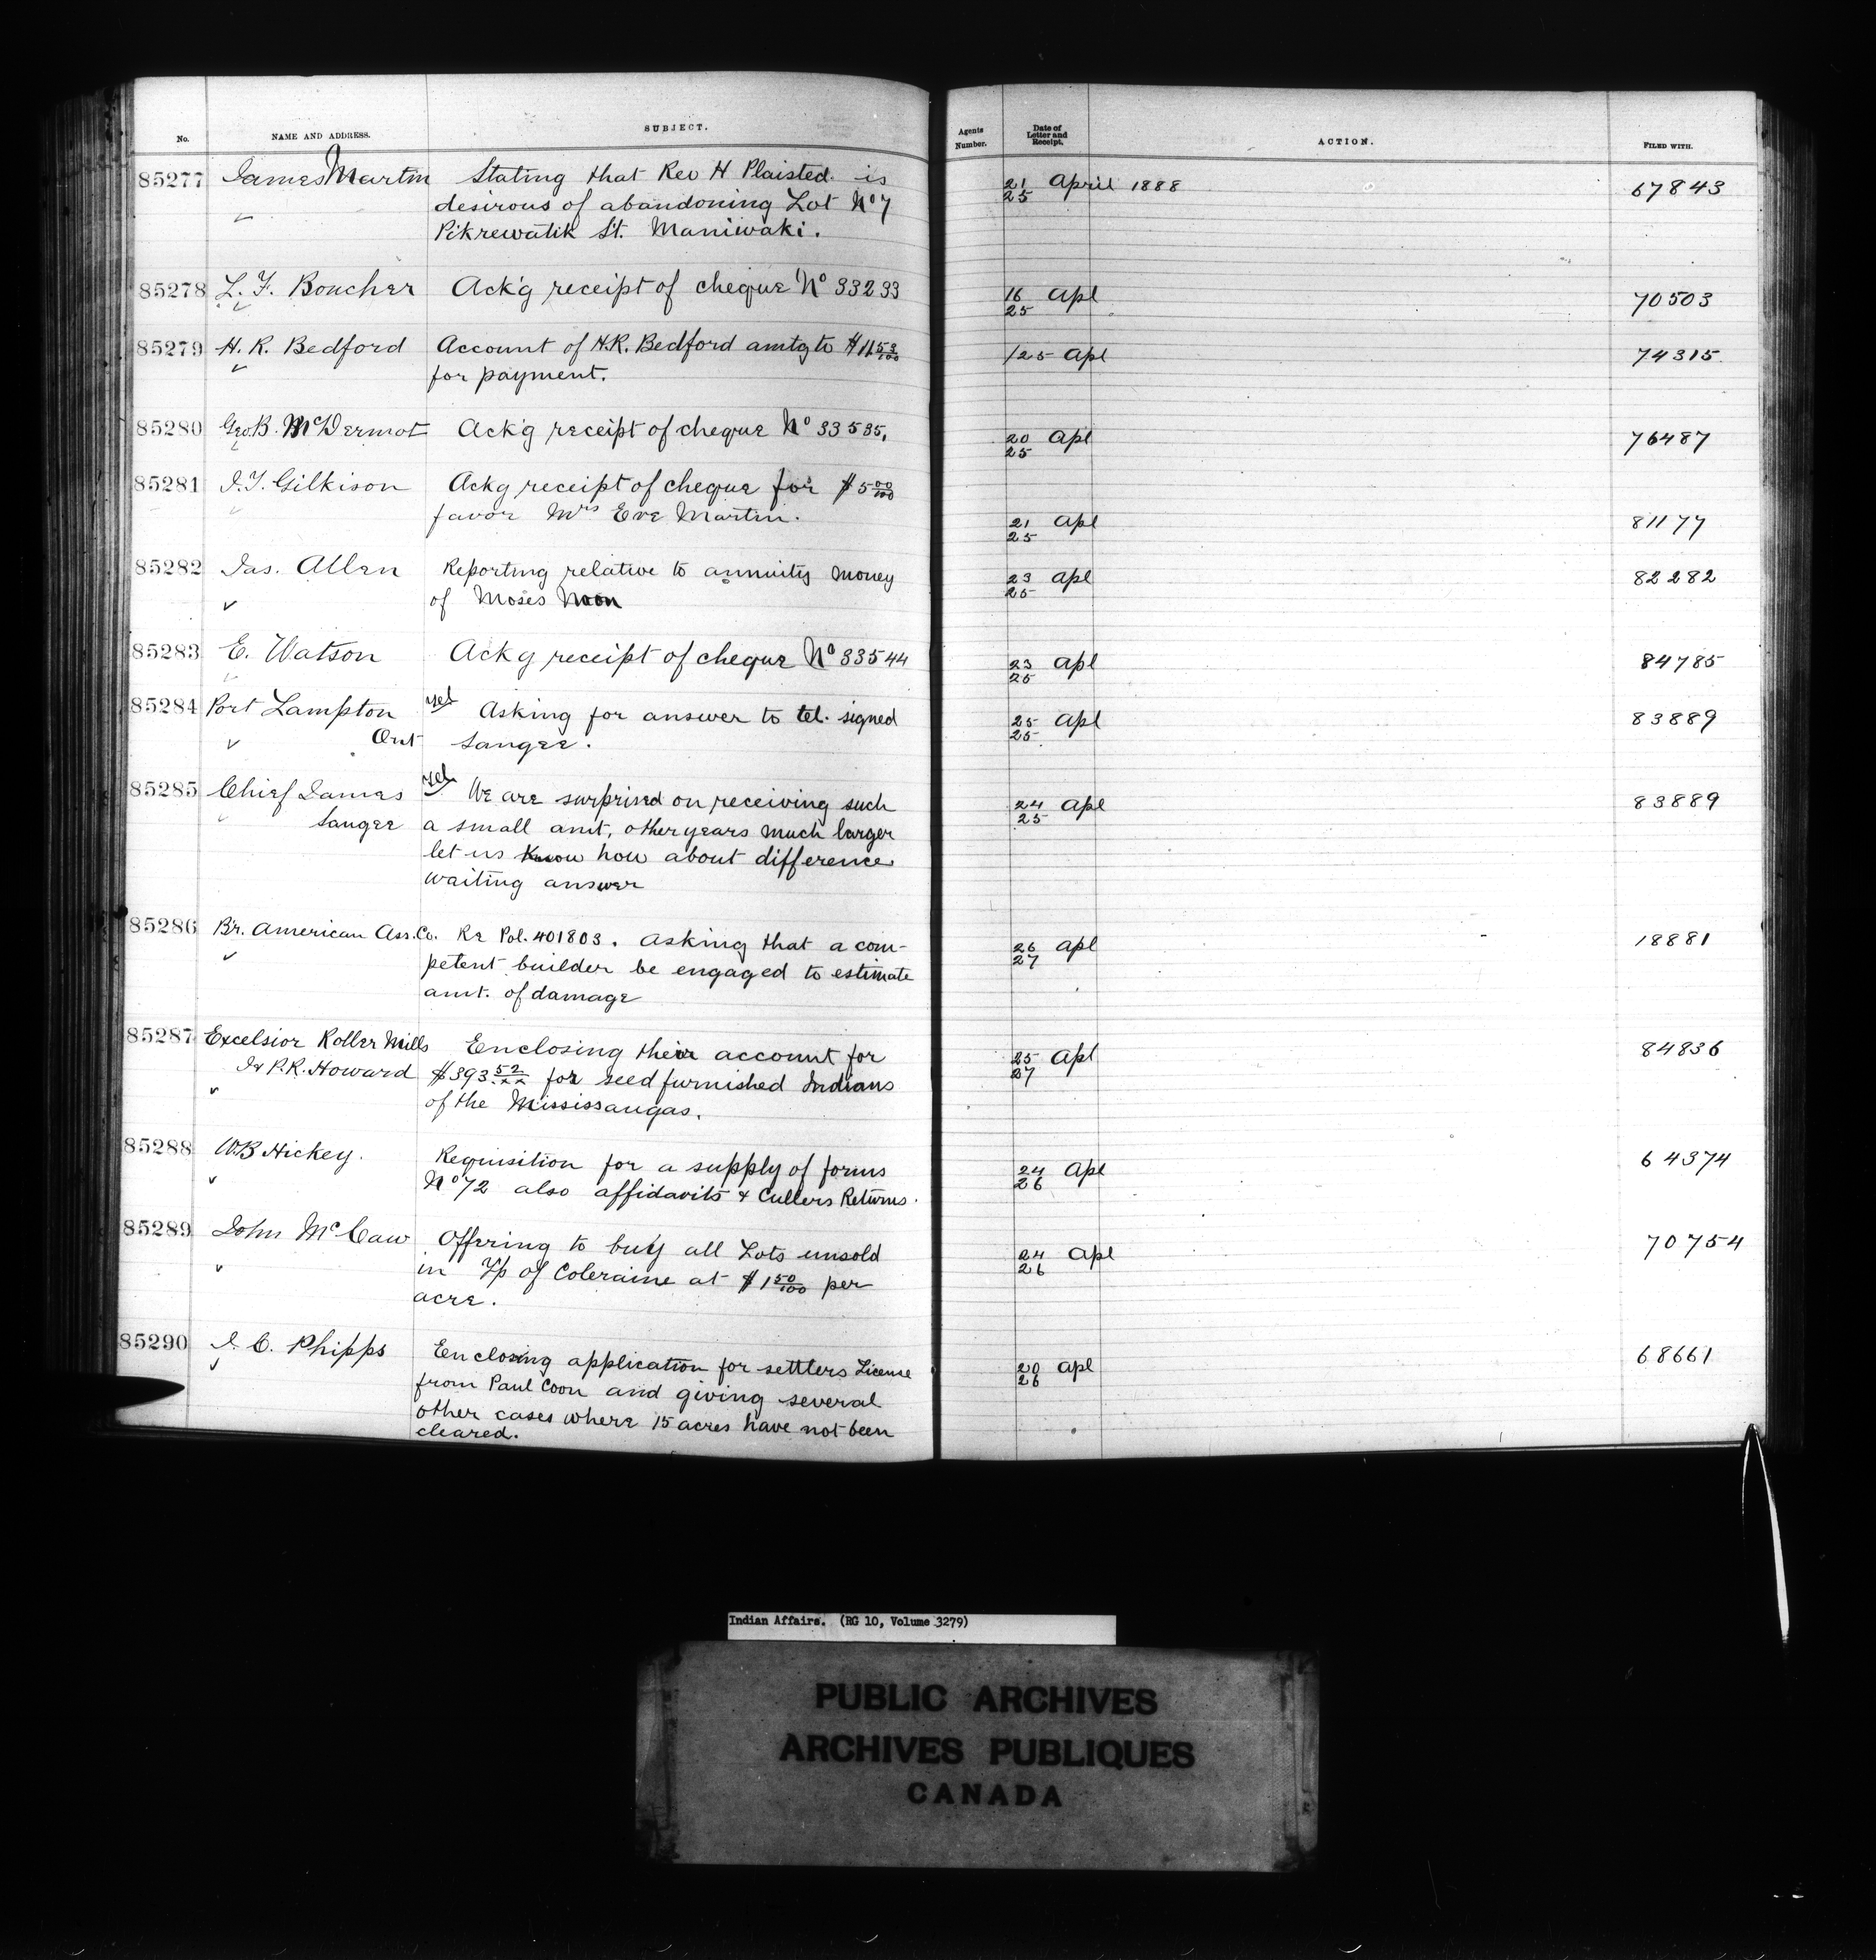 No. NAME AND ADDRESS. SUBJECT. Agents Number. Date of Letter and Receipt. ACTION. FILED WITH.
85277 James Martin Stating that Rev H Plaisted is 21/25 April 1888 67843
desirous of abandoning Lot No 7
Pikrewatik St. Maniwaki.
85278 L. F. Boucher Ack'g receipt of cheque No 33233 16/25 Apl 70503
85279 H. R. Bedford Account of H.R. Bedford amtg to $11 53/100 /25 Apl 74315
for payment.
85280 Geo. B. McDermot Ack'g receipt of cheque No 33535. 20/25 Apl 76487
85281 J. T. Gilkison Ackg receipt of cheque for $5 00/100
favor Mrs Eve Martin. 21/25 Apl 81177
85282 Jas. Allen Reporting relative to annuity money 23/25 Apl 82282
of Moses Noon
85283 E. Watson Ackg receipt of cheque No 33544 23/25 Apl 84785
85284 Port Lampton tel Asking for answer to tel. signed 25/25 Apl 83889
Ont Sangee.
85285 Chief James tel We are surprised on receiving such 24/25 Apl 83889
Sangee a small amt, other years much larger
let us know how about difference
waiting answer
85286 Br. American Ass. Co. Re Pol. 401803. Asking that a com- 26/27 Apl 18881
petent builder be engaged to estimate
amt. of damage
85287 Excelsior Roller Mills Enclosing their account for 25/27 Apl 84836
P.R. Howard $393 52/xx for seed furnished Indians
of the Mississaugas.
85288 W B Hickey. Requisition for a supply of forms 24/26 Apl 64374
No 72 also affidavits & Cullers Returns.
85289 John McCaw Offering to buy all Lots unsold 24/26 Apl 70754
in Tp of Coleraine at $1 50/100 per
acre.
85290 J. C. Phipps Enclosing application for settlers License 20/26 Apl 68661
from Paul Coon and giving several
other cases where 15 acres have not been
cleared.
Indian Affairs. (RG 10, Volume 3279)
PUBLIC ARCHIVES
ARCHIVES PUBLIQUES
CANADA